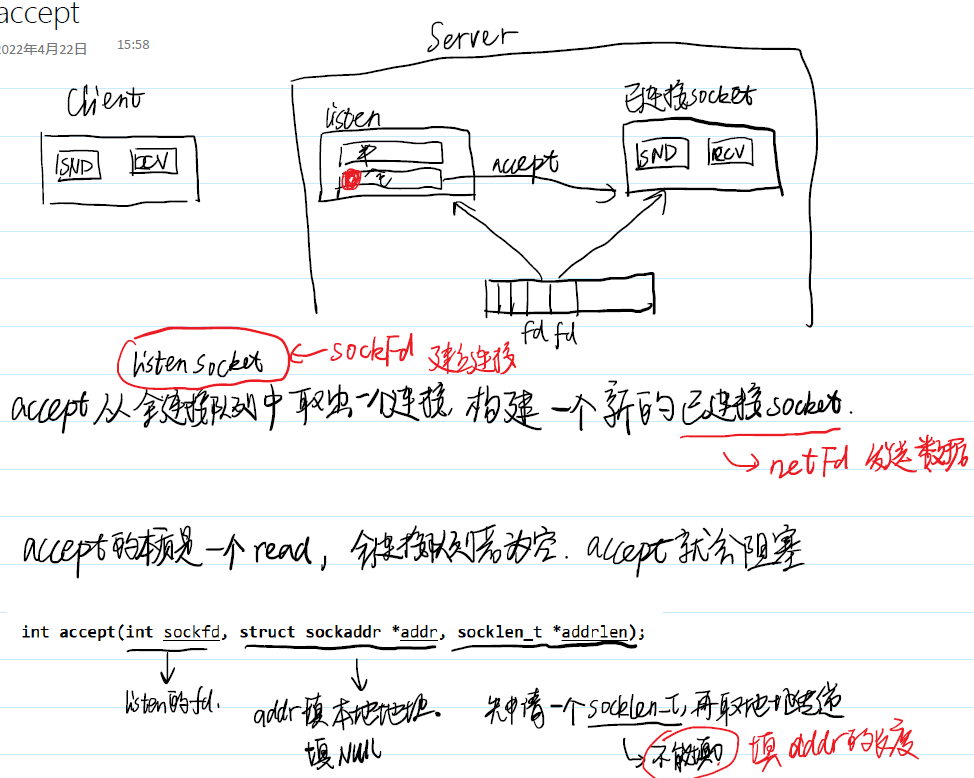 accept
2022年4月22日 15:58
Server
Client
listen
已连接socket
SND RCV
半
全
accept
SND RCV
fd fd
listen socket ← sockFd 建立连接
accept从全连接队列中取出一个连接,构建一个新的已连接socket.
netFd 发送数据
accept的本质是一个read,全连接队列若为空.accept就会阻塞
int accept(int sockfd, struct sockaddr *addr, socklen_t *addrlen);
listen的fd.
addr填本地地址。
填NULL
先申请一个socklen_t,再取地址传递
不能填0
填addr的长度